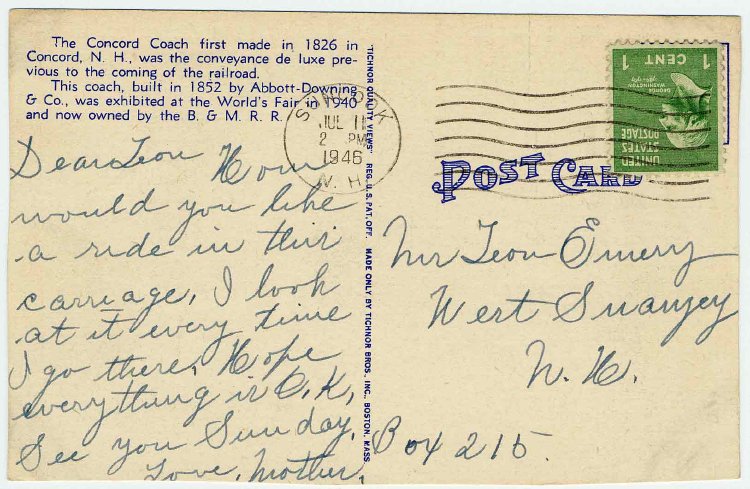 The Concord Coach first made in 1826 in
Concord, N. H., was the conveyance de luxe pre-
vious to the coming of the railroad.
This coach, built in 1852 by Abbott-Downing
& Co., was exhibited at the World's Fair in 1940
and now owned by the B. & M. R. R.
"TICHNOR QUALITY VIEWS" REG. U.S. PAT. OFF. MADE ONLY BY TICHNOR BROS. INC. BOSTON, MASS.
JUL 11
2 PM
1946
N. H.
1 CENT 1
GEORGE
WASHINGTON
UNITED
STATES
POSTAGE
POST CARD
Dear Leon How
would you like
a ride in this
carriage, I look
at it every time
I go there, Hope
everything is O.K,
See you Sunday,
Love, Mother,
Mr Leon Emery
West Swanzey
N. H.
Box 215.